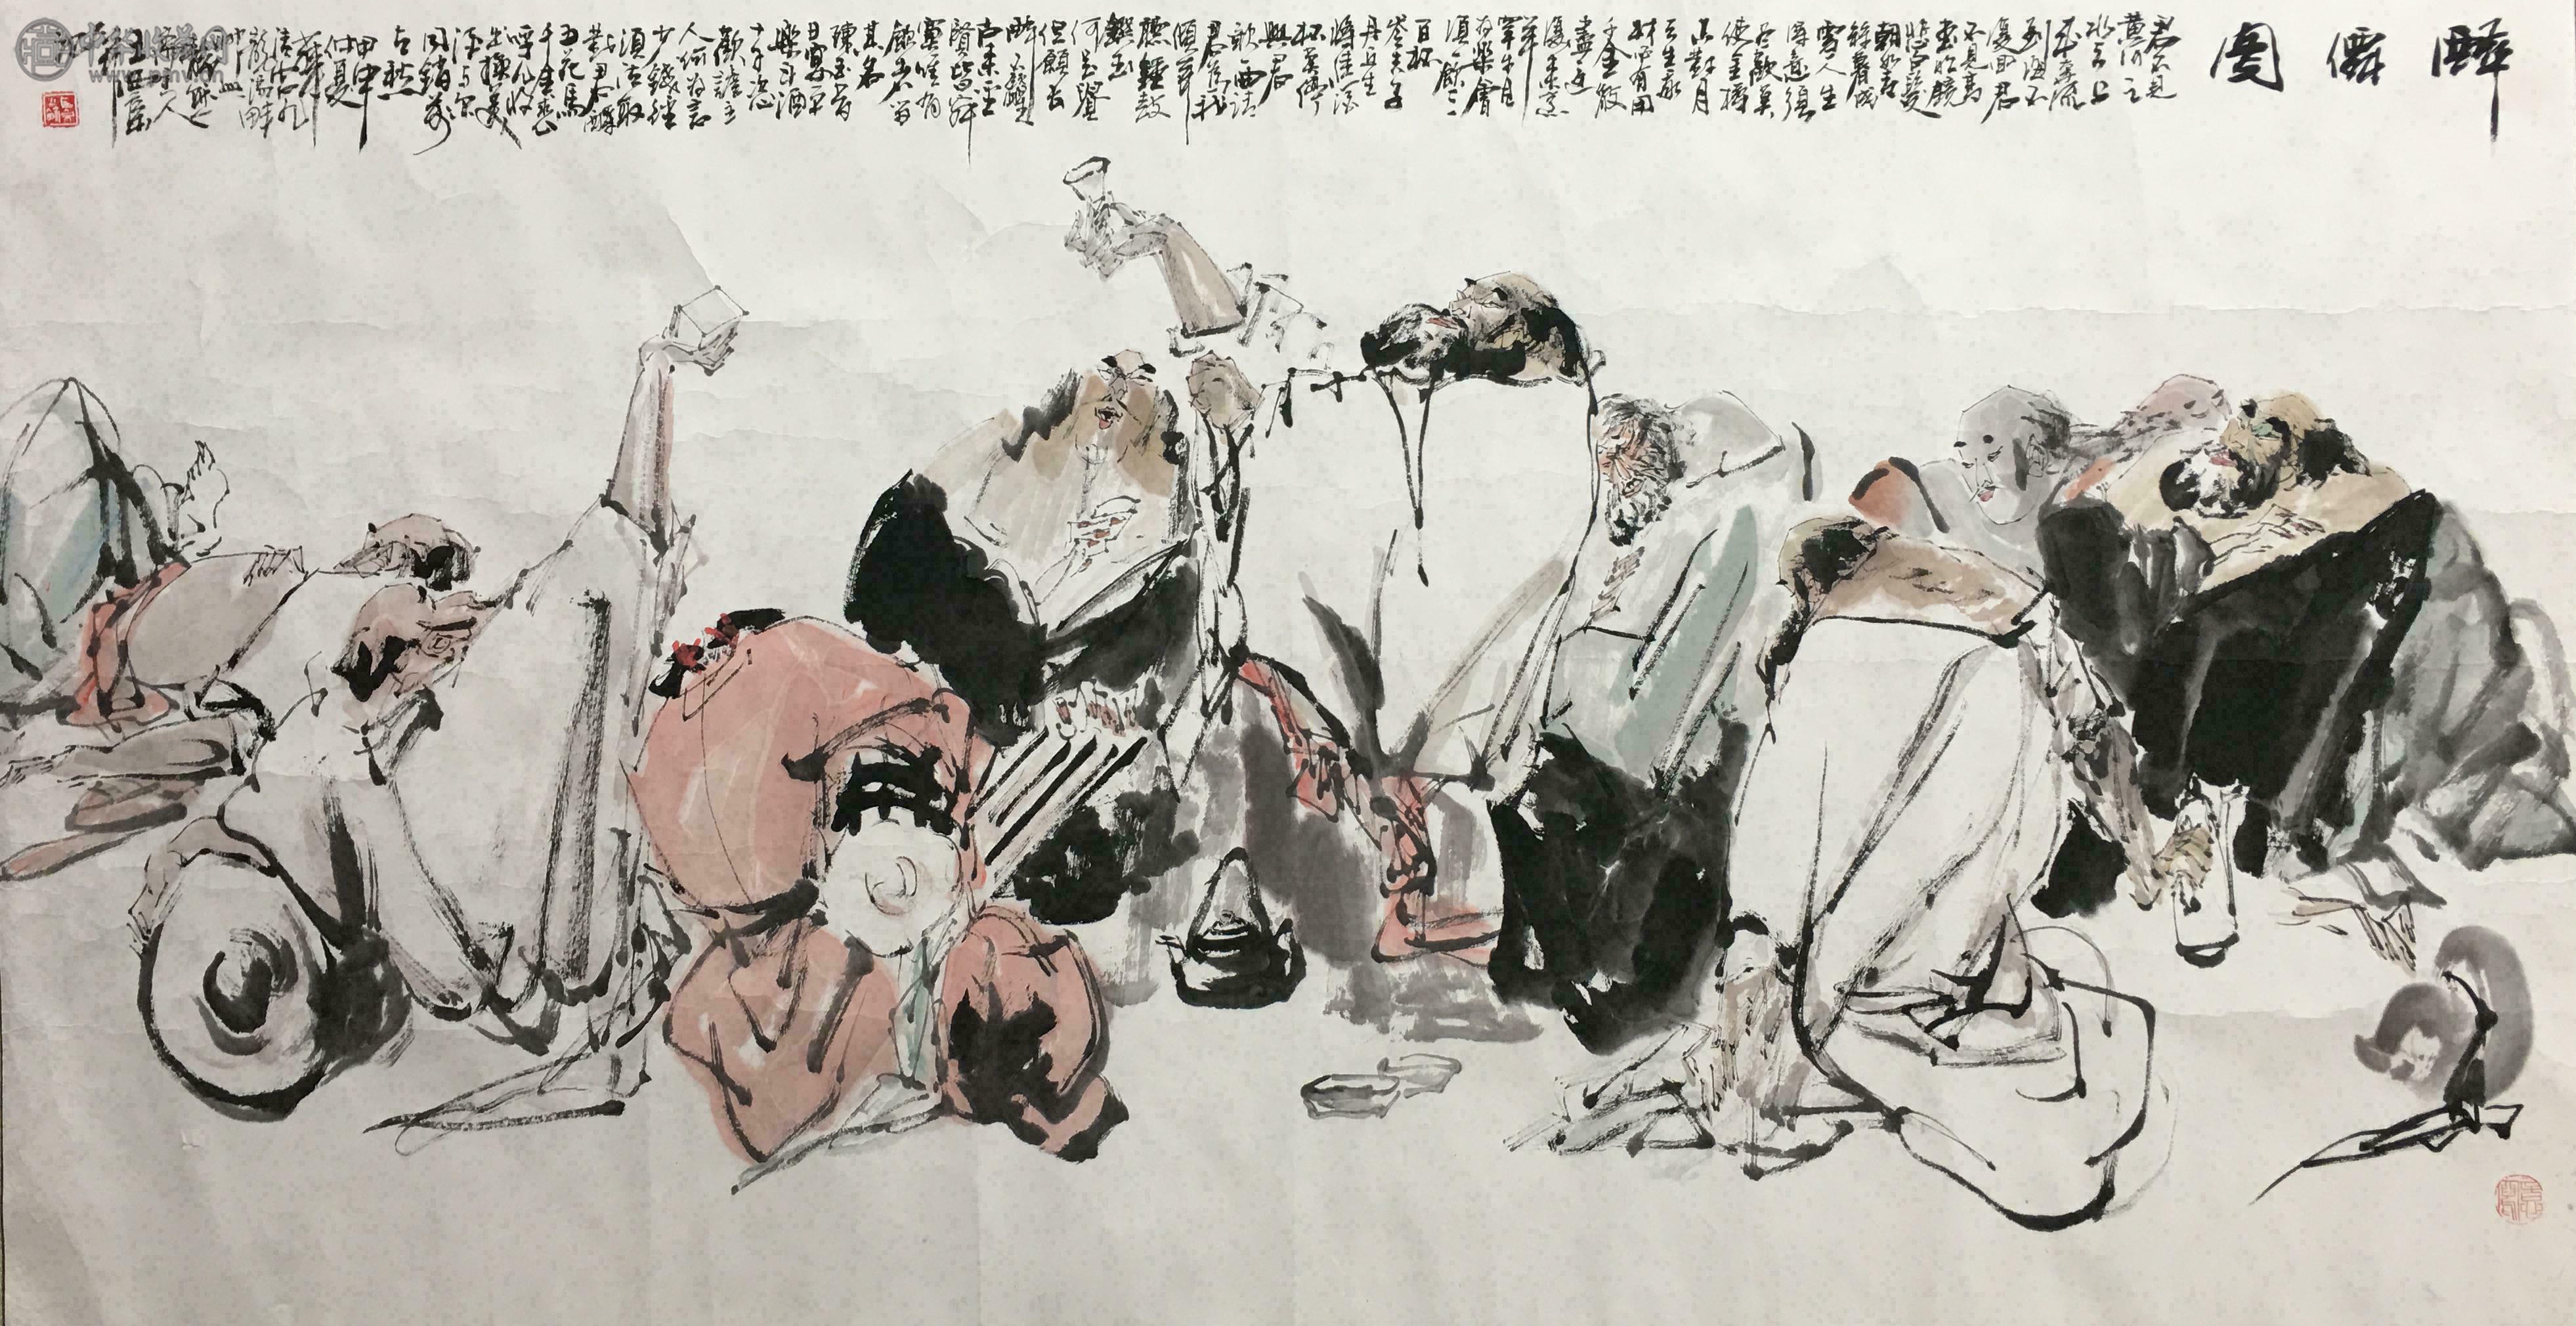 醉僊圖
君不見
黃河之
水天上
來奔流
到海不
復回君
不見高
堂明鏡
悲白髮
朝如青
絲暮成
雪人生
得意須
盡歡莫
使金樽
空對月
天生我
材必有用
千金散
盡還
復來烹
羊
宰牛且
為樂會
須一飲三
百杯
岑夫子
丹丘生
將進酒
杯莫停
與君
歌一曲請
君為我
傾耳
聽鐘鼓
饌玉
何足貴
但願長
醉不願醒
古來聖
賢皆寂
寞唯有
飲者留
其名
陳王昔
日宴平
樂斗酒
十千恣
歡謔主
人何為言
少錢徑
須沽取
對君酌
五花馬
千金裘
呼兒將
出換美
酒與爾
同銷萬
古愁
甲申
仲夏